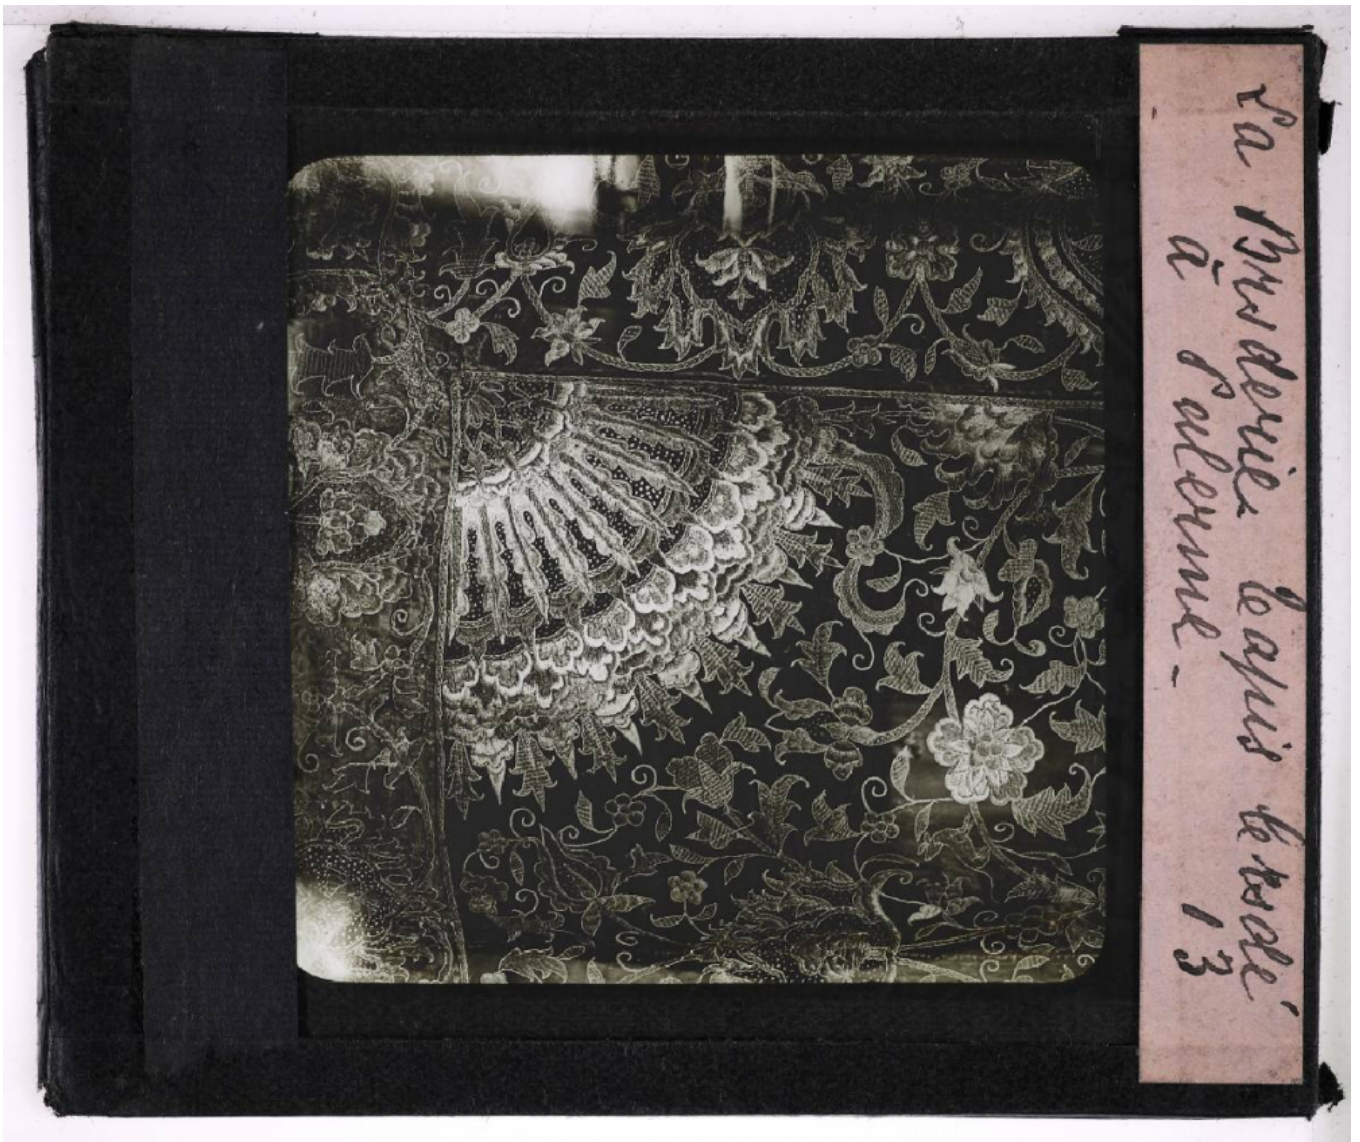 La Broderie le tapis brodé
à Palerme -
13